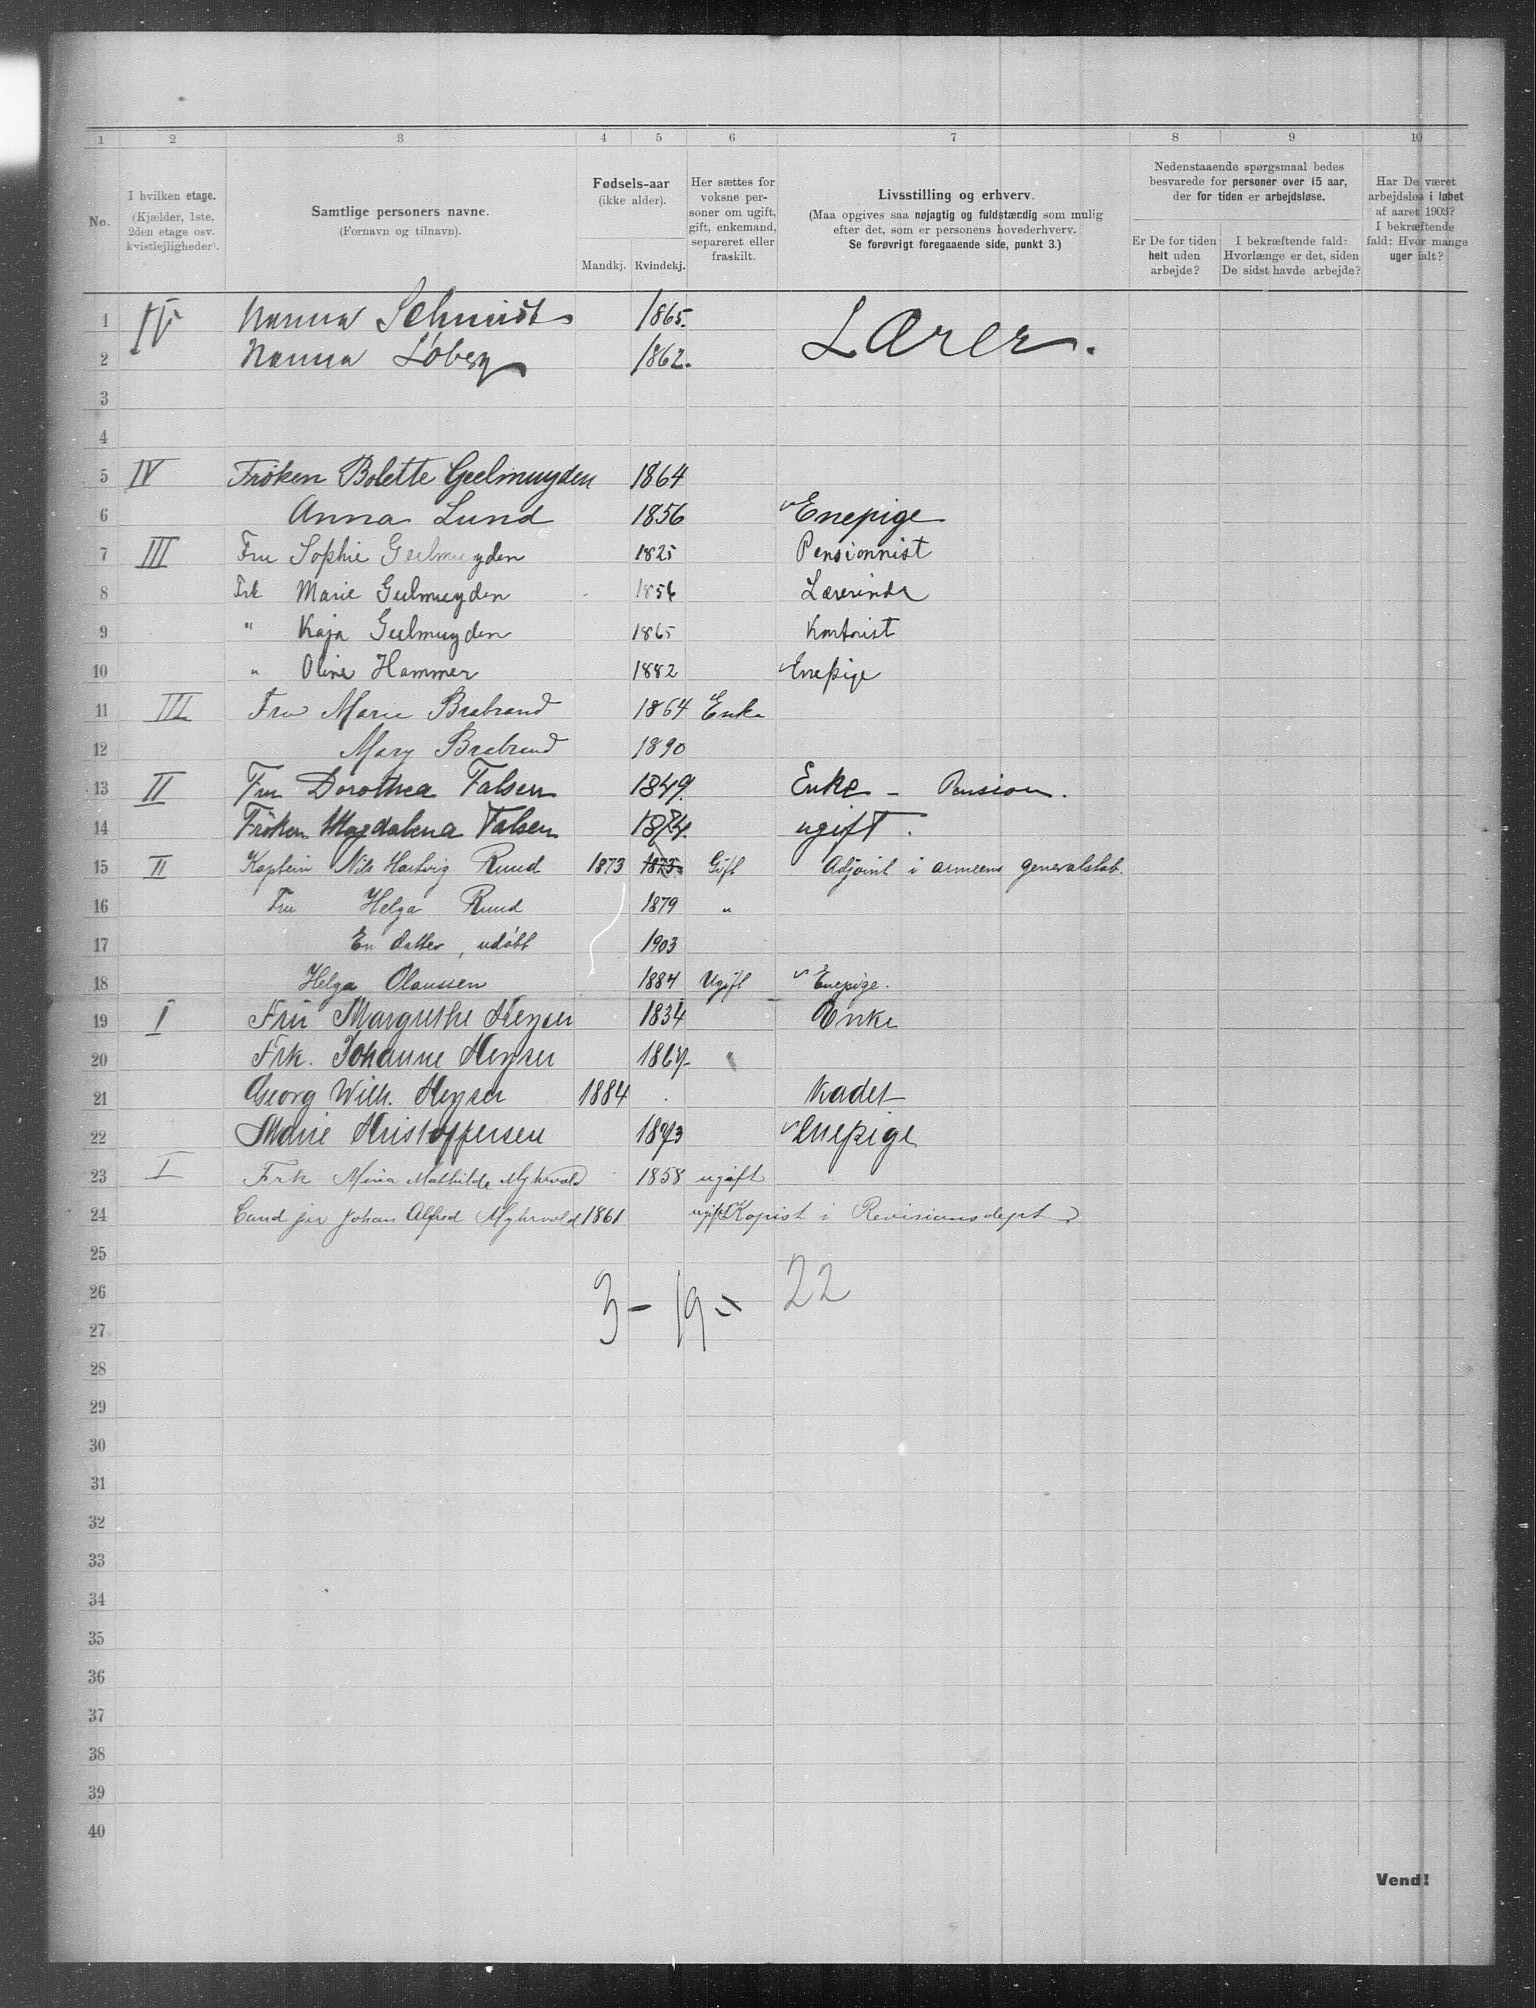 1 2 3 4 5 6 7 8 9 10
No.
I hvilken etage.
(Kjælder, 1ste,
2den etage osv.
kvistlejligheder).
Samtlige personers navne.
(Fornavn og tilnavn).
Fødsels-aar
(ikke alder).
Mandkj. Kvindekj.
Her sættes for
voksne per-
soner om ugift,
gift, enkemand,
separeret eller
fraskilt.
Livsstilling og erhverv.
(Maa opgives saa nøjagtig og fuldstærdig som mulig
efter det, som er personens hovederhverv.
Se forøvrigt foregaaende side, punkt 3.)
Nedenstaaende spørgsmaal bedes
besvarede for personer over 15 aar,
der for tiden er arbejdsløse.
Er De for tiden
helt uden
arbejde?
I bekræftende fald:
Hvorlænge er det, siden
De sidst havde arbejde?
Har De været
arbejdsløs i løbet
af aaret 1903?
I bekræftende
fald: Hvor mange
uger ialt?
1 IV Nanna Schmidt 1865. Lærer.
2 Nanna Løberg 1862.
3
4
5 IV Frøken Bolette Geelmuyden 1864
6 Anna Lund 1856 Enepige
7 III Fru Sophie Geelmuyden 1825 Pensionnist
8 Frk Marie Geelmuyden 1856 Lærerinde
9 " Kaja Geelmuyden 1865 Kontorist
10 " Oline Hammer 1882 Enepige
11 III Fru Marie Brabrand 1864 Enke
12 Mary Brabrand 1890
13 II Fru Dorothea Falsen 1849. Enke - Pension.
14 Frøken Magdalena Falsen ugift.
15 II Kaptein Nils Hartvig Ruud 1873 1873 Gift Adjoint i armeens generalstab.
16 Fru Helga Ruud 1879 "
17 En datter, udøbt 1903
18 Helga Olaussen 1884 Ugift Enepige.
19 I Fru Margrethe Heyser 1834 Enke
20 Frk. Johanne Heyser 1867 "
21 Georg Wilh. Heyser 1884 Kadet
22 Marie Kristoffersen 1873 Enepige
23 I Frk Mina Mathilde Myhrvold 1858 ugift
24 Cand jur Johan Alfred Myhrvold 1861 ugift Kopist i Revisionsdept
25
26 3 - 19 = 22
27
28
29
30
31
32
33
34
35
36
37
38
39
40
Vend!